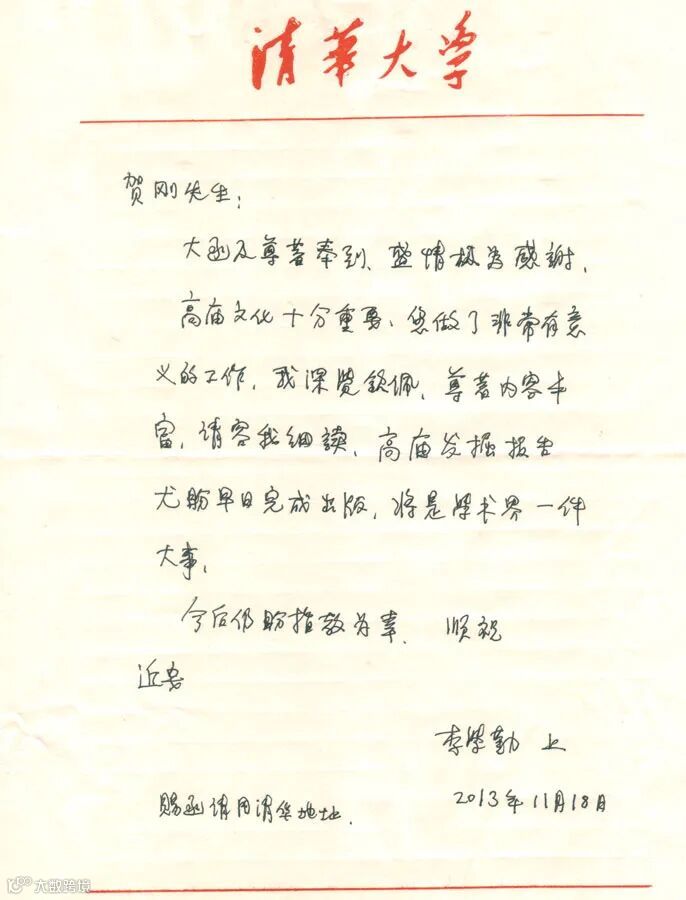 清华大学
贺刚先生：
大函及尊著奉到、盛情极为感謝。
高庙文化十分重要、您做了非常有意
义的工作，我深覺钦佩。尊著内容丰
富，请容我细读、高庙发掘报告
尤盼早日完成出版，将是學术界一件
大事。
今后仍盼指教为幸。 顺祝
近安
李學勤 上
2013年11月18日
赐函请用清华地址.
大数跨境